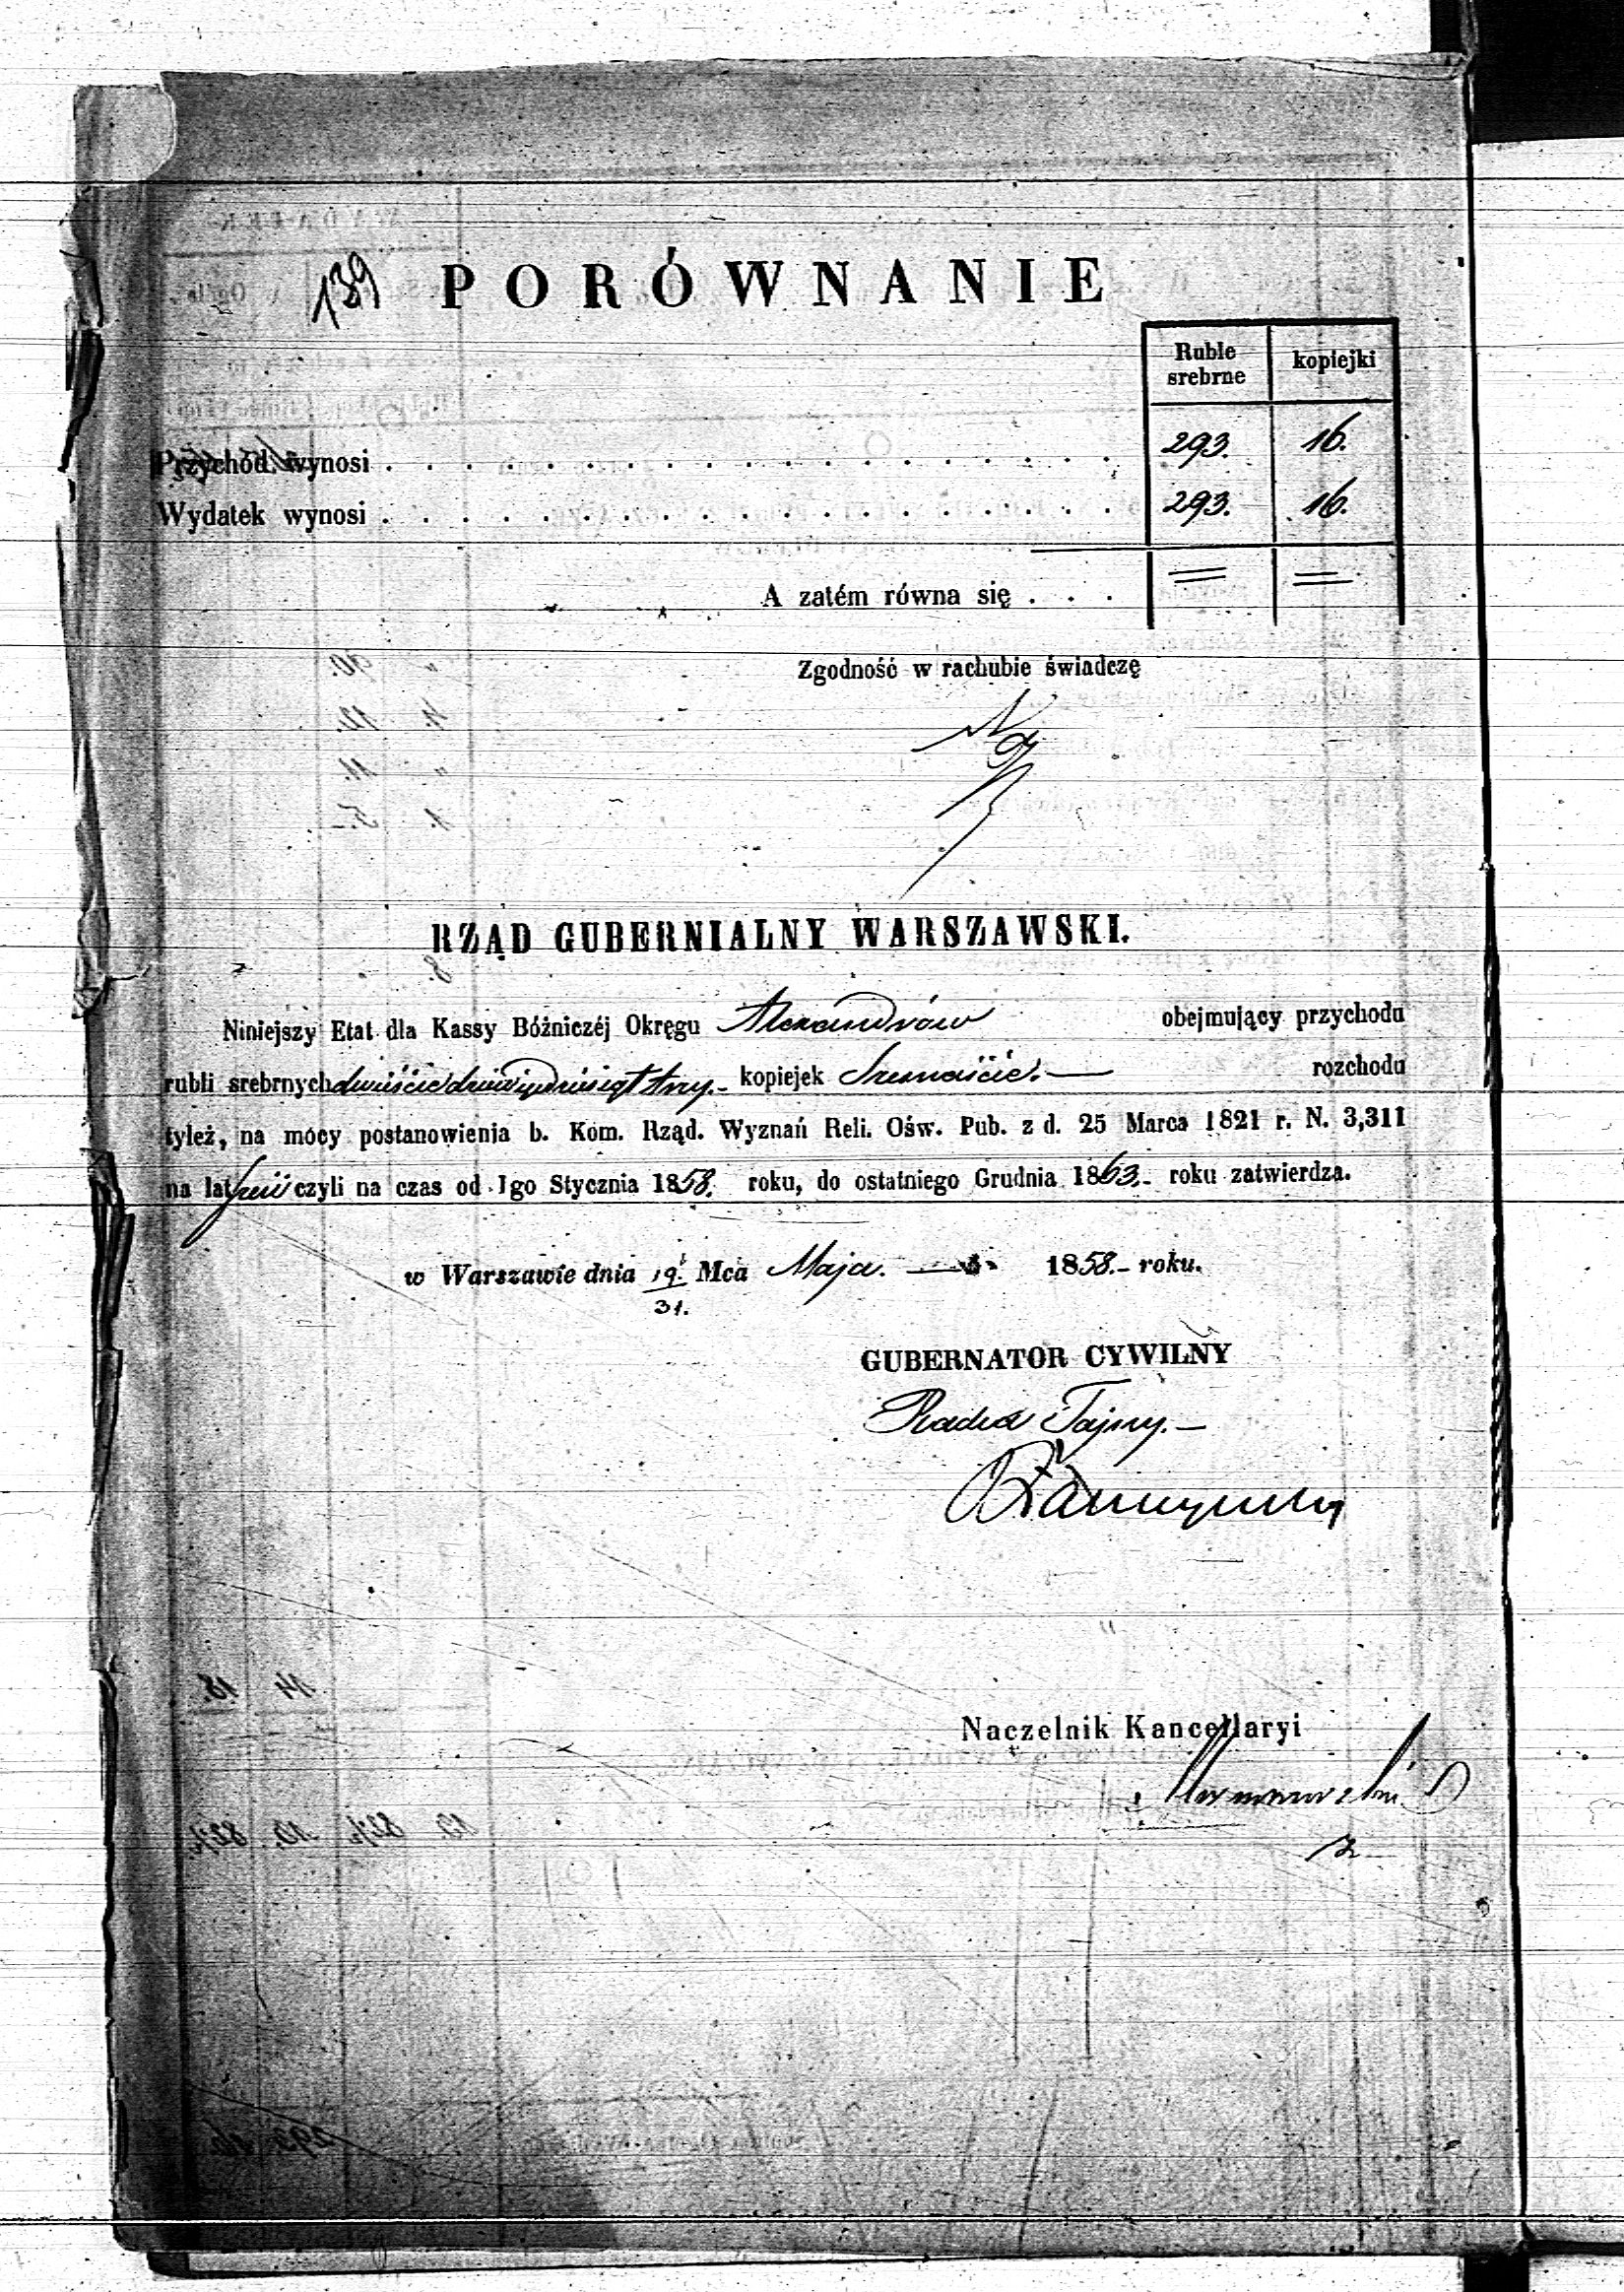 139 PORÓWNANIE
Ruble srebrne kopiejki
Przychód wynosi . . . . . . . . . . . . . . . . . . . 293. 16.
Wydatek wynosi . . . . . . . . . . . . . . . . . . . 293. 16.
A zatém równa się . . . = =
Zgodność w rachubie świadczę
RZĄD GUBERNIALNY WARSZAWSKI.
Niniejszy Etat dla Kassy Bóżniczéj Okręgu Alexandrów obejmujący przychodu
rubli srebrnych dwieście dziewięćdziesiąt trzy.- kopiejek szesnaście.— rozchodu
tyleż, na mocy postanowienia b. Kom. Rząd. Wyznań Reli. Ośw. Pub. z d. 25 Marca 1821 r. N. 3,311
na lat sześć czyli na czas od 1go Stycznia 1858. roku, do ostatniego Grudnia 1863.- roku zatwierdza.
w Warszawie dnia 19/31. Mca Maja. — 1858.- roku.
GUBERNATOR CYWILNY
Radca Tajny.—
Naczelnik Kancellaryi